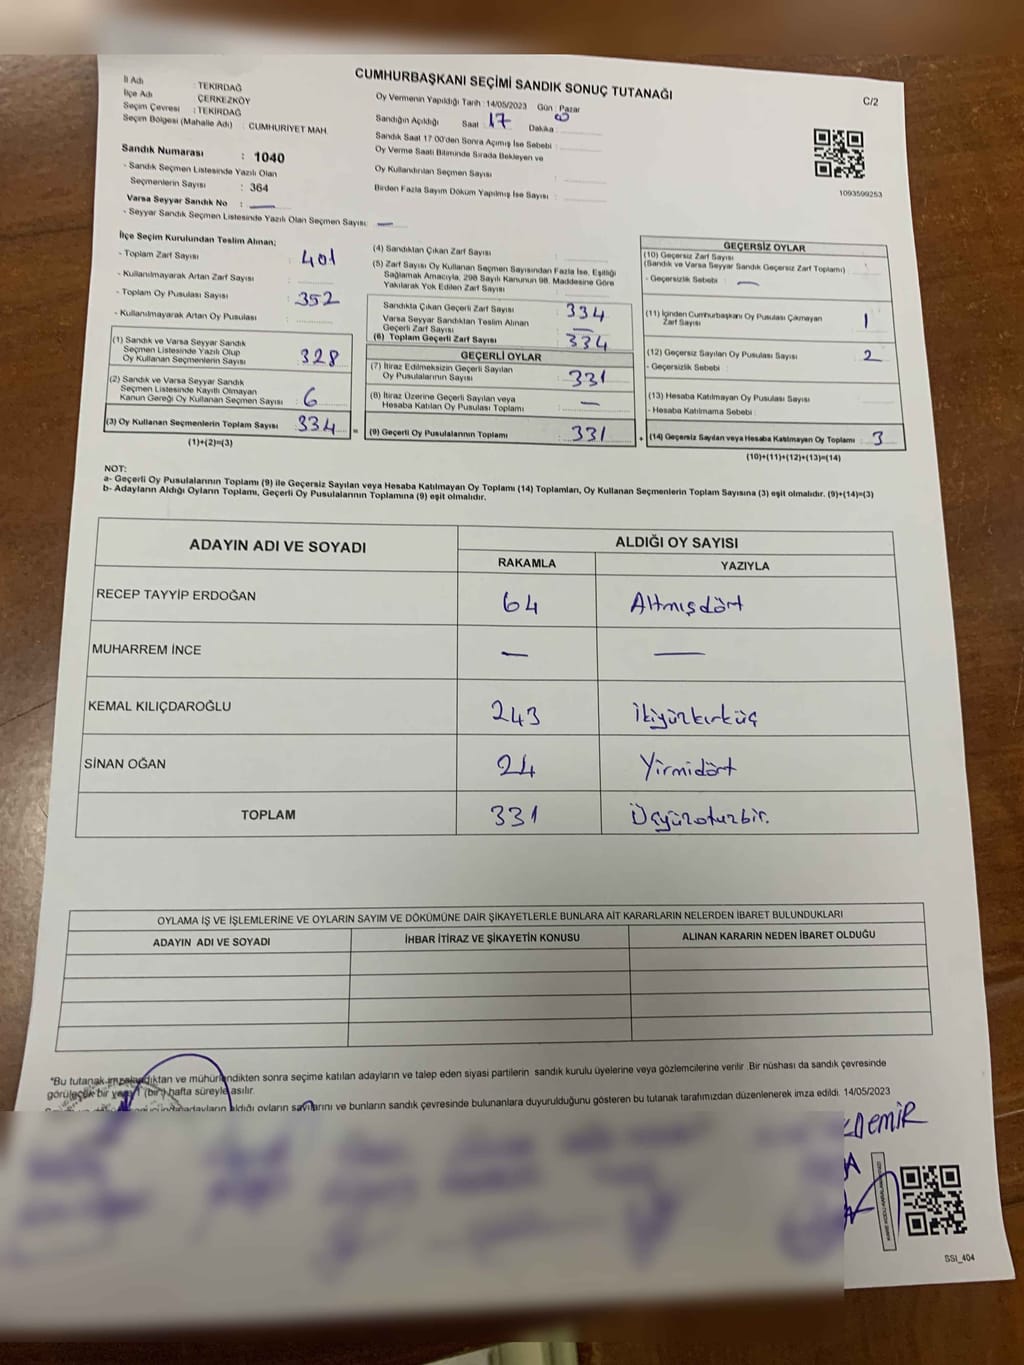 CUMHURBAŞKANI SEÇİMİ SANDIK SONUÇ TUTANAĞI
C/2
İl Adı : TEKİRDAĞ
İlçe Adı ÇERKEZKÖY
Seçim Çevresi : TEKİRDAĞ
Seçim Bölgesi (Mahalle Adı) : CUMHURİYET MAH.
Sandık Numarası : 1040
- Sandık Seçmen Listesinde Yazılı Olan
Seçmenlerin Sayısı : 364
Varsa Seyyar Sandık No : —
- Seyyar Sandık Seçmen Listesinde Yazılı Olan Seçmen Sayısı: —
Oy Vermenin Yapıldığı Tarih : 14/05/2023 Gün : Pazar
Sandığın Açıldığı Saat 17 Dakika
Sandık Saat 17 00'den Sonra Açımış İse Sebebi :
Oy Verme Saati Bitiminde Sırada Bekleyen ve
Oy Kullandırılan Seçmen Sayısı :
Birden Fazla Sayım Döküm Yapılmış İse Sayısı :
1093599253
İlçe Seçim Kurulundan Teslim Alınan;
- Toplam Zarf Sayısı : 401
- Kullanılmayarak Artan Zarf Sayısı :
- Toplam Oy Pusulası Sayısı : 352
- Kullanılmayarak Artan Oy Pusulası :
(1) Sandık ve Varsa Seyyar Sandık
Seçmen Listesinde Yazılı Olup
Oy Kullanan Seçmenlerin Sayısı : 328
(2) Sandık ve Varsa Seyyar Sandık
Seçmen Listesinde Kayıtlı Olmayan
Kanun Gereği Oy Kullanan Seçmen Sayısı : 6
(3) Oy Kullanan Seçmenlerin Toplam Sayısı : 334
(1)+(2)=(3)
(4) Sandıktan Çıkan Zarf Sayısı :
(5) Zarf Sayısı Oy Kullanan Seçmen Sayısından Fazla İse, Eşitliği
Sağlamak Amacıyla, 298 Sayılı Kanunun 98. Maddesine Göre
Yakılarak Yok Edilen Zarf Sayısı :
Sandıkta Çıkan Geçerli Zarf Sayısı : 334
Varsa Seyyar Sandıktan Teslim Alınan
Geçerli Zarf Sayısı : —
(6) Toplam Geçerli Zarf Sayısı : 334
GEÇERLİ OYLAR
(7) İtiraz Edilmeksizin Geçerli Sayılan
Oy Pusulalarının Sayısı : 331
(8) İtiraz Üzerine Geçerli Sayılan veya
Hesaba Katılan Oy Pusulası Toplamı : —
= (9) Geçerli Oy Pusulalarının Toplamı : 331
GEÇERSİZ OYLAR
(10) Geçersiz Zarf Sayısı
(Sandık ve Varsa Seyyar Sandık Geçersiz Zarf Toplamı) :
- Geçersizlik Sebebi : —
(11) İçinden Cumhurbaşkanı Oy Pusulası Çıkmayan
Zarf Sayısı : 1
(12) Geçersiz Sayılan Oy Pusulası Sayısı : 2
- Geçersizlik Sebebi :
(13) Hesaba Katılmayan Oy Pusulası Sayısı :
- Hesaba Katılmama Sebebi :
+ (14) Geçersiz Sayılan veya Hesaba Katılmayan Oy Toplamı : 3
(10)+(11)+(12)+(13)=(14)
NOT:
a- Geçerli Oy Pusulalarının Toplamı (9) ile Geçersiz Sayılan veya Hesaba Katılmayan Oy Toplamı (14) Toplamları, Oy Kullanan Seçmenlerin Toplam Sayısına (3) eşit olmalıdır. (9)+(14)=(3)
b- Adayların Aldığı Oyların Toplamı, Geçerli Oy Pusulalarının Toplamına (9) eşit olmalıdır.
ADAYIN ADI VE SOYADI ALDIĞI OY SAYISI
RAKAMLA YAZIYLA
RECEP TAYYİP ERDOĞAN 64 Altmışdört
MUHARREM İNCE — —
KEMAL KILIÇDAROĞLU 243 İkiyüzkırküç
SİNAN OĞAN 24 Yirmidört
TOPLAM 331 Üçyüzotuzbir.
OYLAMA İŞ VE İŞLEMLERİNE VE OYLARIN SAYIM VE DÖKÜMÜNE DAİR ŞİKAYETLERLE BUNLARA AİT KARARLARIN NELERDEN İBARET BULUNDUKLARI
ADAYIN ADI VE SOYADI İHBAR İTİRAZ VE ŞİKAYETİN KONUSU ALINAN KARARIN NEDEN İBARET OLDUĞU
"Bu tutanak imzalandıktan ve mühürlendikten sonra seçime katılan adayların ve talep eden siyasi partilerin sandık kurulu üyelerine veya gözlemcilerine verilir. Bir nüshası da sandık çevresinde
görülecek bir yere 1 (bir) hafta süreyle asılır.
adayların aldığı oyların sayılarını ve bunların sandık çevresinde bulunanlara duyurulduğunu gösteren bu tutanak tarafımızdan düzenlenerek imza edildi. 14/05/2023
DEMİR
SSI_404